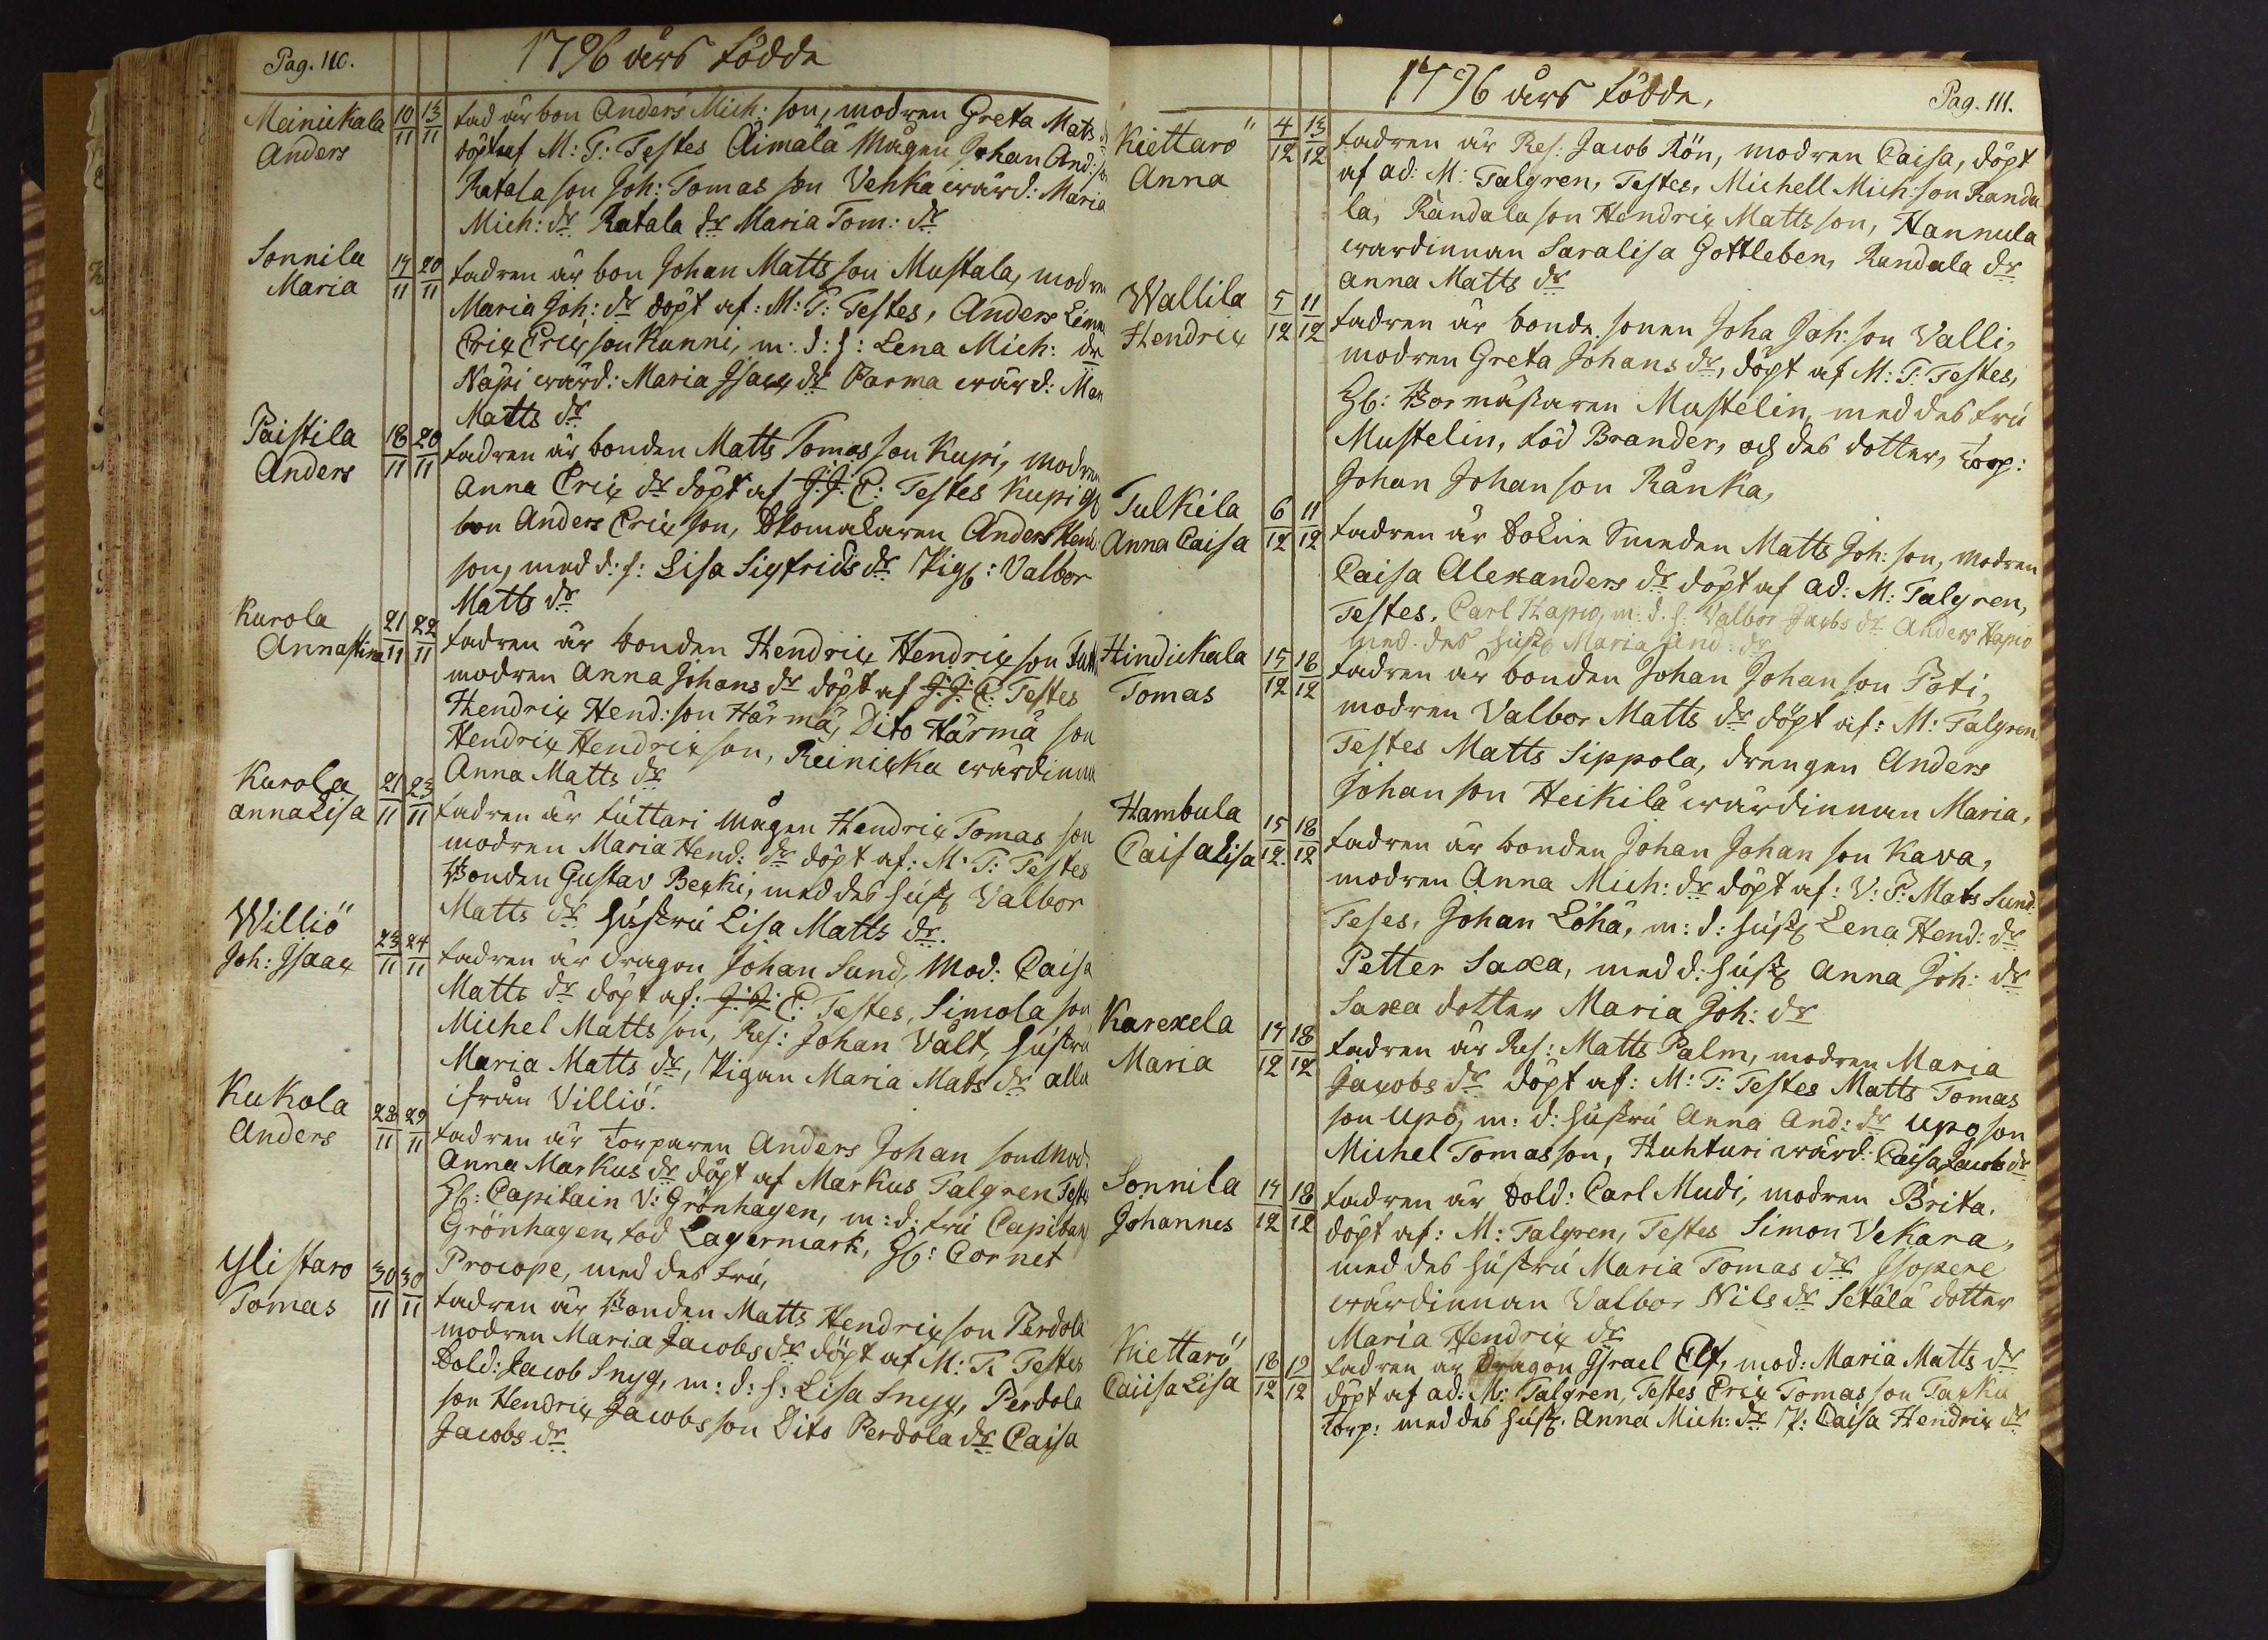 Pag. 110.
1796 års födde
Meinickala 10/11 13/11 fad är bon Anders Mich: son, modren Greta Mats
Anders döpt af M: T: Testes Äimälä mågen Johan And: son
Ratala son Joh: Tomas son Vehka wärd: Maria
Mich: dr Ratala dr Maria Tom: dr
Sonnila 17/11 20/11 fadren är bon Johan Matts son Mustala, modren
Maria Maria Joh: dr döpt af: M: T: Testes, Anders
Erix Erix son Kunni, m: d: h: Lena Mich: dr
Näpi wärd: Maria Isacx dr Parma wärd:
Matts dr
Paistila 18/11 20/11 fadren är bonden Matts Tomas son Kupi, modren
Anders Anna Erix dr döpt af J: J: C: Testes Kupi
bon Anders Erix son, Skomakaren Anders Hend:
son, med d: h: Lisa Sigfrids dr Pig: Valbor
Matts dr
Kurola 21/11 22/11 fadren är bonden Hendrix Hendrix son
Annastina modren Anna Johans dr döpt af J: J: C: Testes
Hendrix Hend: son Härmä, Dito Härmä son
Hendrix Hendrix son, Reinicka wärdinna
Anna Matts dr
Kurola 21/11 23/11 fadren är tuttari mågen Hendrix Tomas son
Anna Lisa modren Maria Hend: dr döpt af: M: T: Testes
Bonden Gustav Becki, med des hust Valbor
Matts dr hustru Lisa Matts dr.
Williö 23/11 24/11 fadren är dragon Johan Sund, Mod: Caisa
Joh: Isaac Matts dr döpt af: J: J: C: Testes, Simola son
Michel Matts son, Res: Johan Vält, hustru
Maria Matts dr, Pigan Maria Mats dr alla
ifrån Williö.
Kukola 28/11 29/11 fadren är Torparen Anders Johan son Mod:
Anders Anna Markus dr döpt af Markus Talgren Testes
Hb: Capitain V: Grönhagen, m: d: fru Capitan
Grönhagen, född Lagermark, Hb: Cornet
Procope, med des fru,
Ylistaro 30/11 30/11 fadren är Bonden Matts Hendrix son Perdola
Tomas modren Maria Jacobs dr döpt af M: T: Testes
Sold: Jacob Snyg, m: d: h: Lisa Snyg, Perdola
son Hendrix Jacobs son Dito Perdola dr Caisa
Jacobs dr
1796 års födde,
Pag. 111.
Kiettarö 4/12 13/12 fadren är Res: Jacob Rön, modren Caisa, döpt
Anna af ad: M: Talgren, Testes, Michell Mich: son Randa
la, Randala son Hendrix Matts son, Hannula
wärdinnan Saralisa Gottleben, Randala dr
Anna Matts dr
Wallila 5/12 11/12 fadren är bonde sonen Joha Joh: son Valli,
Hendrix modren Greta Johans dr, döpt af M: T: Testes,
Hb: Bormästaren Mustelin, med des fru
Mustelin, född Brander, och des dotter, Torp:
Johan Johan son Ränka,
Tulkila 6/12 11/12 fadren är Sokne Smeden Matts Joh: son, modren
Anna Caisa Caisa Alexanders dr döpt af ad: M: Talgren,
Testes, Carl Hapio, m: d: h: Valbor Jacobs dr Anders Hapio
med des hust Maria And: dr
Hindickala 15/12 18/12 fadren är bonden Johan Johan son Poti,
Tomas modren Valbor Matts dr döpt af: M: Talgren
Testes Matts Sippola, drengen Anders
Johan son Heikilä wärdinnan Maria,
Hambula 15/12 18/12 fadren är bonden Johan Johan son Kava,
Caisa Lisa modren Anna Mich: dr döpt af: V: P: Mats Sund:
Teses, Johan Löhä, m: d: hust Lena Hend: dr
Petter Saxa, med d: hust Anna Joh: dr
Saxa dotter Maria Joh: dr
Karexela 17/12 18/12 fadren är Res: Matts Palm, modren Maria
Maria Jacobs dr döpt af: M: T: Testes Matts Tomas
son Upo, m: d: hustru Anna And: dr Upo son
Michel Tomas son, Huhturi wärd: Caisa Jacobs dr
Sonnila 17/12 18/12 fadren är Sold: Carl Mudi, modren Brita.
Johannes döpt af: M: Talgren, Testes Simon Vekara,
med des hustru Maria Tomas dr Isopere
wärdinnan Valbor Nils dr Setälä dotter
Maria Hendrix dr
Kiettarö 18/12 19/12 fadren är dragon Israel Elf, mod: Maria Matts dr
Caiisa Lisa döpt af ad: M: Talgren, Testes Erix Tomas son Tacku
Torp: med des hust: Anna Mich: dr P: Caisa Hendrix dr